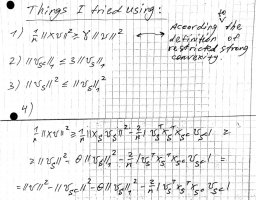 Things I tried using:
1) 1/n ||Xν||² ≥ γ||ν||² ⟷ According to the
definition of
restricted strong
convexity.
2) ||ν_{S^c}||₁ ≤ 3||ν_S||₁
3) ||ν_S||² ≤ ||ν_S||₁²
4)
1/n ||Xν||² ≥ 1/n ||X_S ν_S||² - 2/n |ν_S^T X_S^T X_{S^c} ν_{S^c}| ≥
≥ ||ν_S||² - θ||ν_S||₁² - 2/n |ν_S^T X_S^T X_{S^c} ν_{S^c}| =
= ||ν||² - ||ν_{S^c}||² - θ||ν_S||₁² - 2/n |ν_S^T X_S^T X_{S^c} ν_{S^c}|